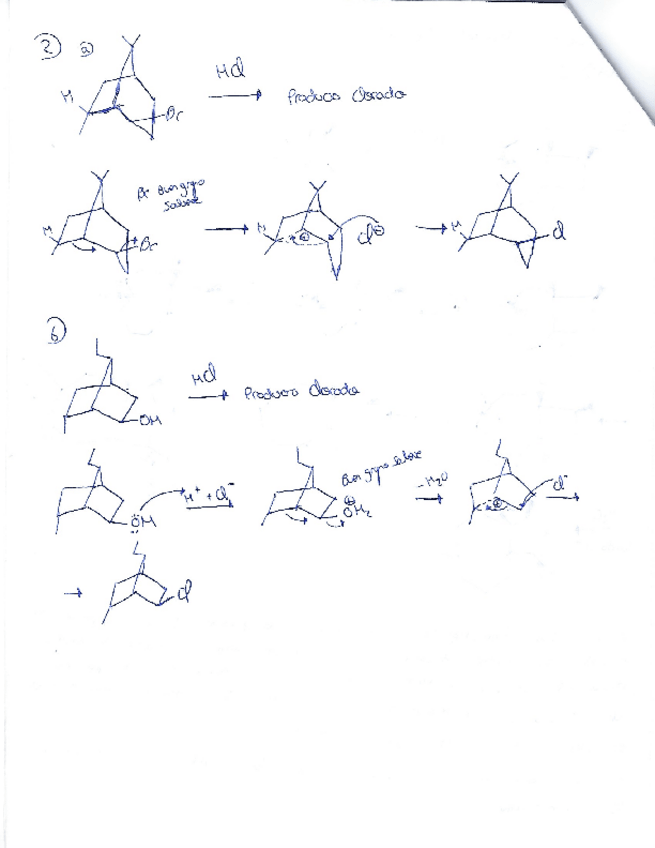 2) a)
H Br HCl → Producto Clorado
H Br Br⁻ buen grupo saliente → H ⊕ Cl⊖ → H Cl
b)
OH HCl → Producto Clorado
ÖH H⁺ + Cl⁻ → ⊕ÖH₂ Buen grupo saliente -H₂O → ⊕ Cl⁻ →
→ Cl